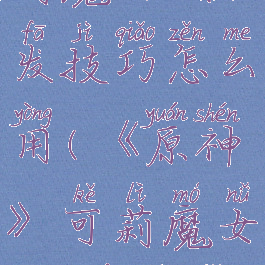 fā jì qiǎo zěn me
发技巧怎么
yòng yuán shén
用(《原神
kě lì mó nǚ
》可莉魔女